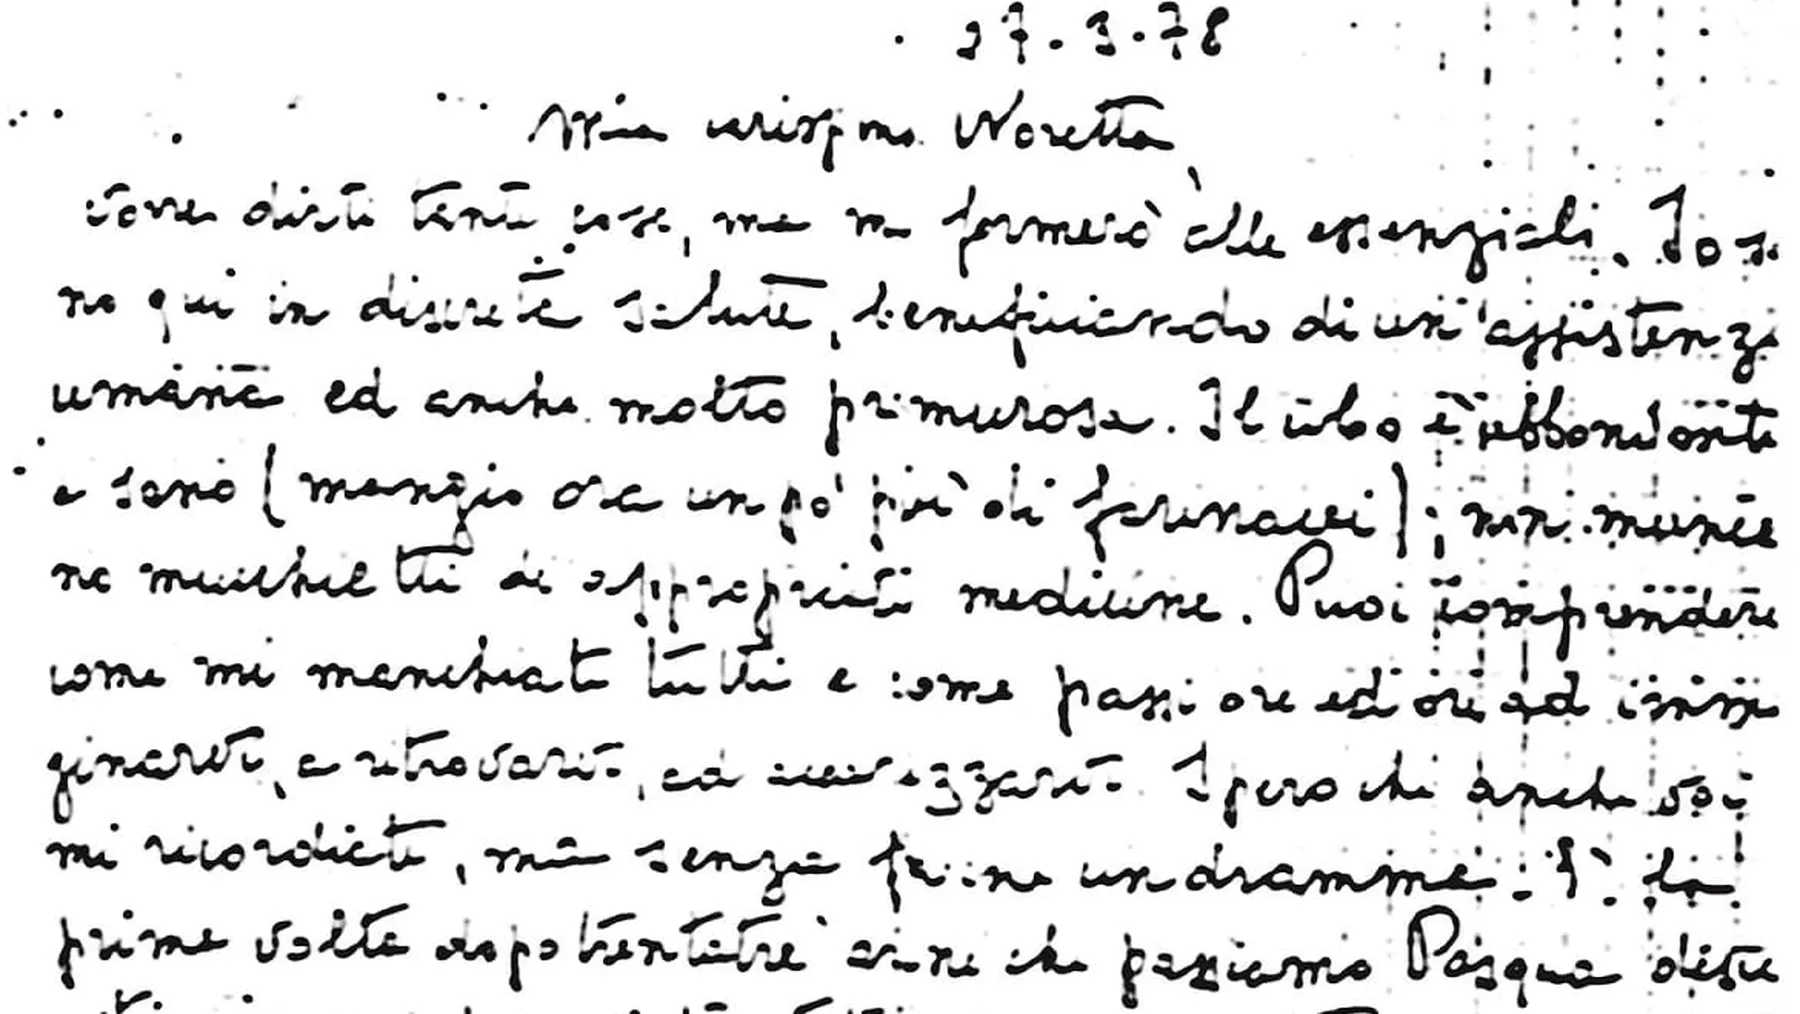 27.3.78
Mia carissima Noretta,
vorrei dirti tante cose, ma mi fermerò alle essenziali. Io so
no qui in discreta salute, beneficiando di un'assistenza
umana ed anche molto premurosa. Il cibo è abbondante
e sano (mangio ora un pò più di farinacei); non manca
no mucchietti di appropriate medicine. Puoi comprendere
come mi manchiate tutti e come passi ore ed ore ad imma
ginarvi, a ritrovarvi, ad accarezzarvi. Spero che anche voi
mi ricordiate, ma senza farne un dramma. È la
prima volta dopo trentatré anni che passiamo Pasqua disu